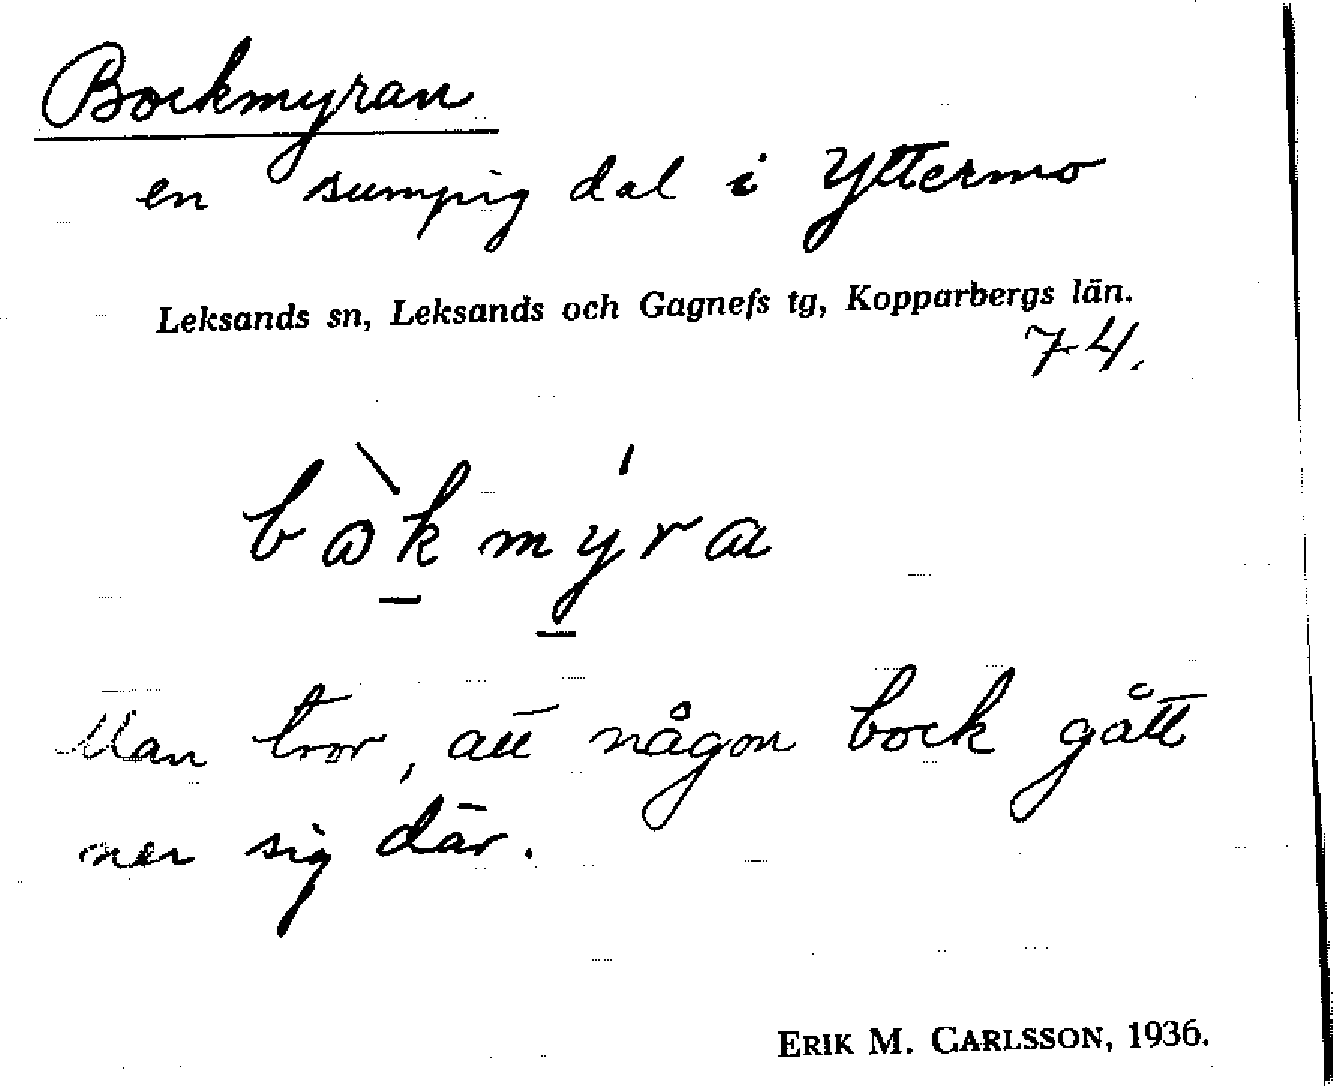 Bockmyran
en sumpig dal i Yttermo
Leksands sn, Leksands och Gagnefs tg, Kopparbergs län.
74.
bòkmýra
Man tror, att någon bock gått
ner sig där.
ERIK M. CARLSSON, 1936.